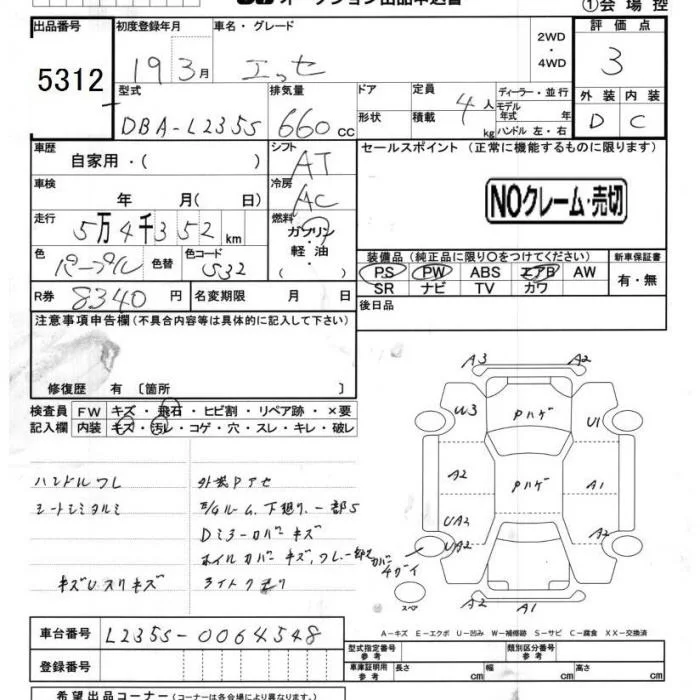 ①会 場 控
出品番号 初度登録年月 車名・グレード 2WD ・ 4WD 評 価 点
5312 19年3月 エッセ 3
型式 排気量 ドア 定員 ディーラー・並 行 外 装 内 装
DBA-L235S 660cc 形状 積載 4人 kg モデル年式 年 ハンドル 左・右 D C
車歴 自家用・( ) シフト AT セールスポイント (正常に機能するものに限ります)
車検 年 月( 日) 冷房 AC NOクレーム・売切
走行 5万4千352km 燃料 ガソリン
軽 油
装備品 (純正品に限り○をつけてください) 新車保証書
色 パープル 色替 色コード S32 PS PW ABS エアB AW 有・無
R券 8340円 名変期限 月 日 SR ナビ TV カワ
注意事項申告欄(不具合内容等は具体的に記入して下さい) 後日品
修復歴 有 〔箇所 〕
検査員 FW キズ・飛石・ヒビ割・リペア跡・×要
記入欄 内装 キズ・汚レ・コゲ・穴・スレ・キレ・破レ
ハンドルワレ 外装Pアセ
シートシミタルミ E/Gルーム、下廻り、一部S
Dミラーカバーキズ
ホイルカバーキズ,ワレ、
キズUスリキズ ライトクモリ
A3 A2
W3 Pハゲ U1
A2 Pハゲ A1
UA2 A2
UA2
カバーチガイ
スペア
A2 A1
A－キズ E－エクボ U－凹み W－補修跡 S－サビ C－腐食 XX－交換済
車台番号 L235S-0064548 型式指定番号 参 考 類別区分番号 参 考
登録番号 車庫証明用 参 考 長さ cm 幅 cm 高さ cm
希望出品コーナー(コーナーは各会場により異なります。)